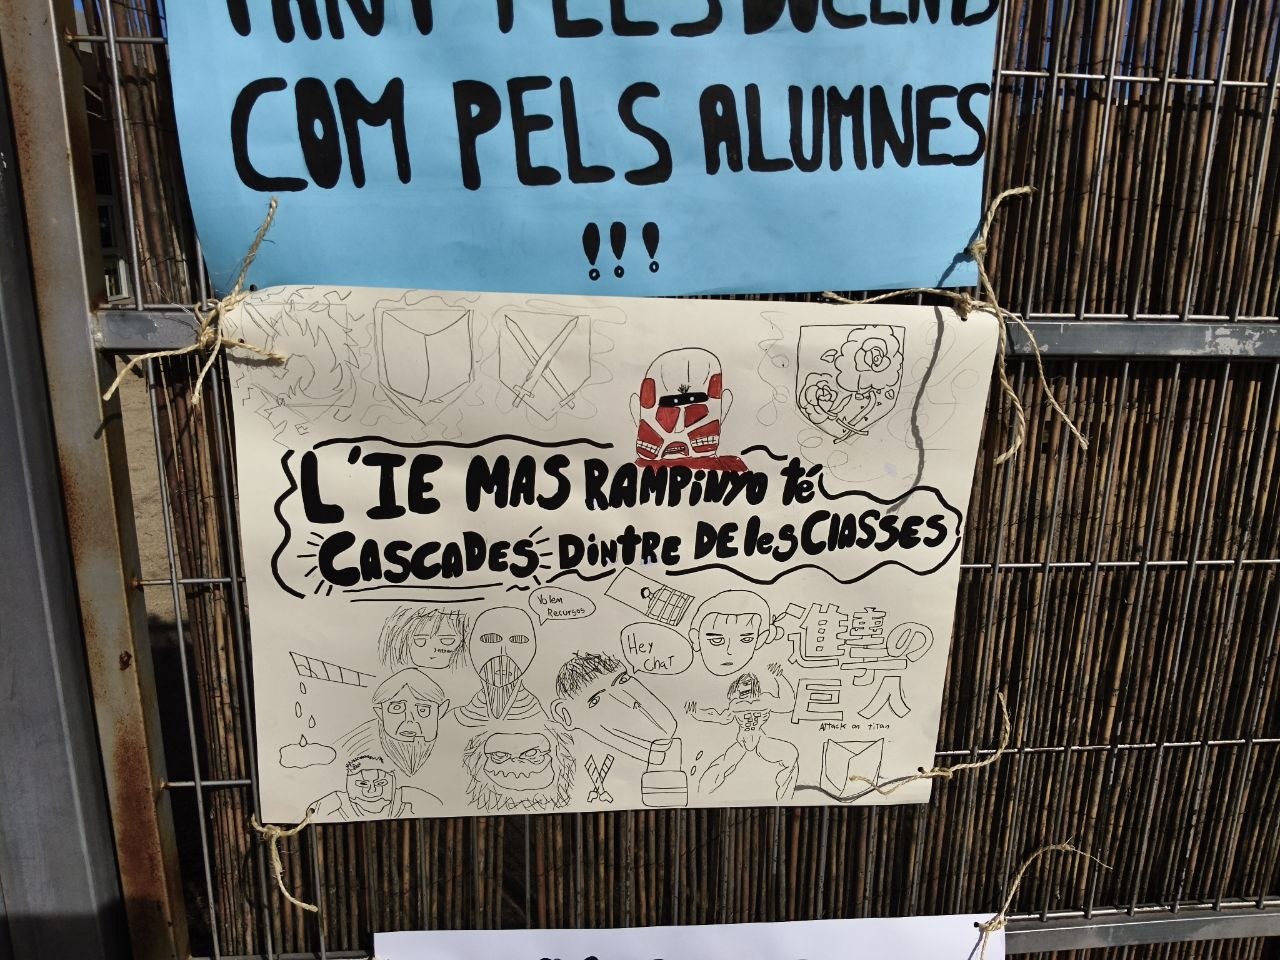 TANT PELS DOCENTS
COM PELS ALUMNES
!!!
L'IE MAS RAMPINYO té
CASCADES DINTRE DE les CLASSES
Volem
Recursos
Hey
chat
進撃の
巨人
Attack on titan